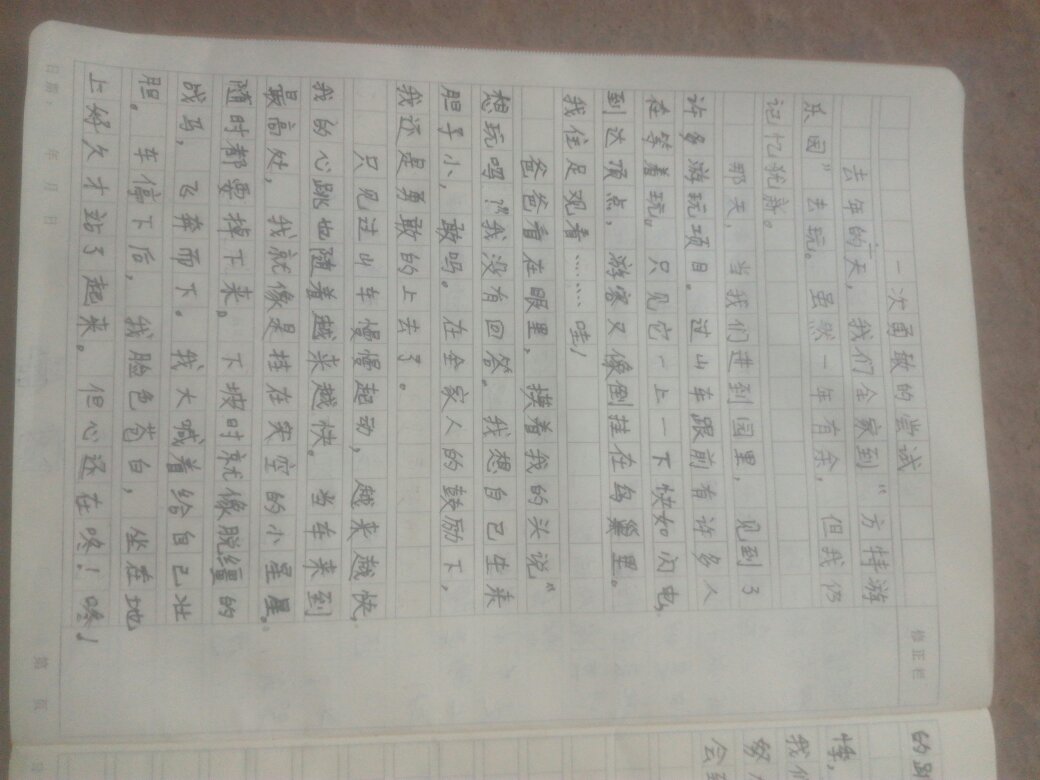 一次勇敢的尝试
去年的一天，我们全家到“方特游
乐园”去玩。虽然一年有余，但我仍
记忆犹新。
那天，当我们进到园里，见到了
许多游玩项目。过山车跟前有许多人
在等着玩。只见它一上一下快如闪电，
到达顶点，游客又像倒挂在鸟巢里。
我住足观看………哇！
爸爸看在眼里，摸着我的头说“
想玩吗？”我没有回答。我想自己生来
胆子小，敢吗。在全家人的鼓励下，
我还是勇敢的上去了。
只见过山车慢慢起动，越来越快，
我的心跳也随着越来越快。当车来到
最高处，我就像是挂在实空的小星星。
随时都要掉下来。下坡时就像脱缰的
战马，飞奔而下。我大喊着给自己壮
胆。车停下后，我脸色苍白，坐在地
上好久才站了起来。但心还在咚！咚！
修正栏
日期： 年 月 日
第 页
的
悸，
我们
努力
会